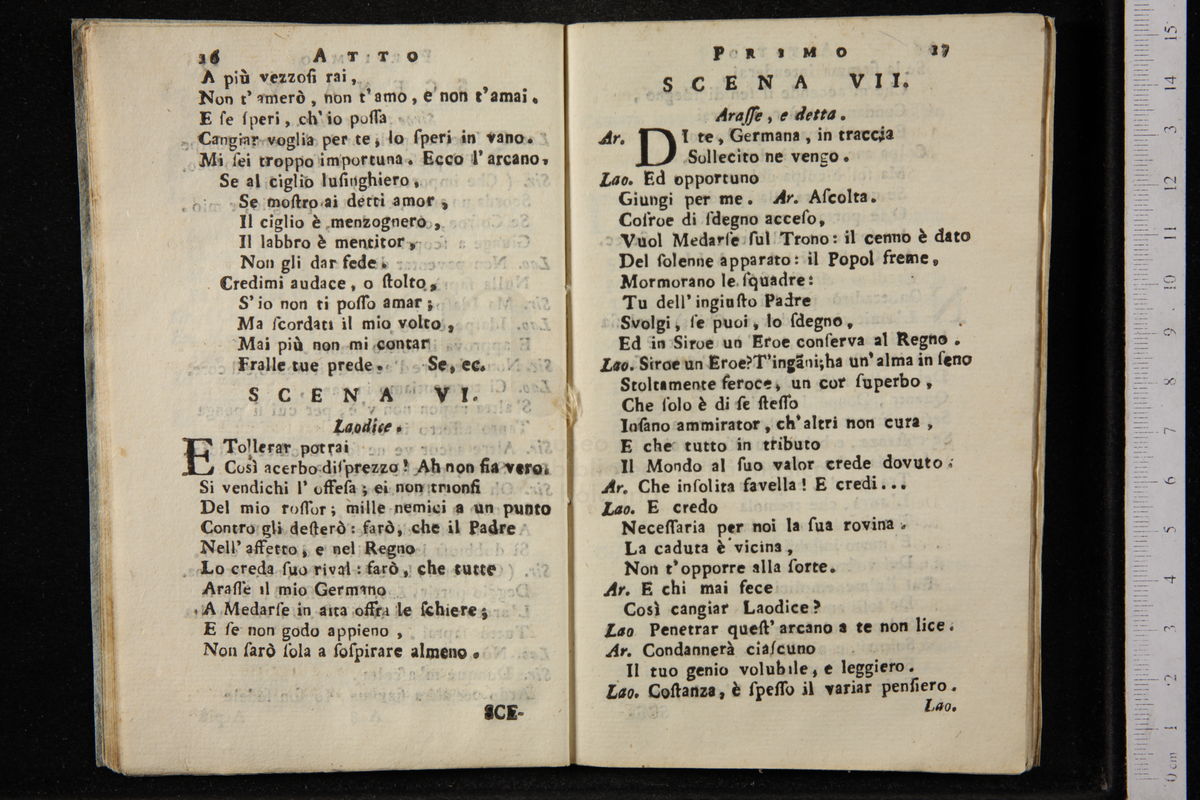 16 ATTO
A più vezzoſi rai,
Non t'amerò, non t'amo, e non t'amai.
E ſe ſperi, ch'io poſſa
Cangiar voglia per te, lo ſperi in vano.
Mi ſei troppo importuna. Ecco l'arcano.
Se al ciglio luſinghiero,
Se moſtro ai detti amor,
Il ciglio è menzognero,
Il labbro è mentitor,
Non gli dar fede.
Credimi audace, o ſtolto,
S'io non ti poſſo amar;
Ma ſcordati il mio volto,
Mai più non mi contar
Fralle tue prede. Se, ec.
SCENA VI.
Laodice.
E Tollerar potrai
Così acerbo diſprezzo! Ah non fia vero.
Si vendichi l'offeſa; ei non trionfi
Del mio roſſor; mille nemici a un punto
Contro gli deſterò: farò, che il Padre
Nell'affetto, e nel Regno
Lo creda ſuo rival: farò, che tutte
Araſſe il mio Germano
A Medarſe in aita offra le ſchiere;
E ſe non godo appieno,
Non farò ſola a ſoſpirare almeno.
SCE-
PRIMO 17
SCENA VII.
Araſſe, e detta.
Ar. DI te, Germana, in traccia
Sollecito ne vengo.
Lao. Ed opportuno
Giungi per me. Ar. Aſcolta.
Coſroe di ſdegno acceſo,
Vuol Medarſe ſul Trono: il cenno è dato
Del ſolenne apparato: il Popol freme,
Mormorano le ſquadre:
Tu dell'ingiuſto Padre
Svolgi, ſe puoi, lo ſdegno,
Ed in Siroe un Eroe conſerva al Regno.
Lao. Siroe un Eroe? T'ingãni; ha un'alma in ſeno
Stoltamente feroce, un cor ſuperbo,
Che ſolo è di ſe ſteſſo
Inſano ammirator, ch'altri non cura,
E che tutto in tributo
Il Mondo al ſuo valor crede dovuto.
Ar. Che inſolita favella! E credi...
Lao. E credo
Neceſſaria per noi la ſua rovina.
La caduta è vicina,
Non t'opporre alla ſorte.
Ar. E chi mai fece
Così cangiar Laodice?
Lao Penetrar queſt'arcano a te non lice.
Ar. Condannerà ciaſcuno
Il tuo genio volubile, e leggiero.
Lao. Coſtanza, è ſpeſſo il variar penſiero.
Lao.
0 cm 1 2 3 4 5 6 7 8 9 10 11 12 13 14 15